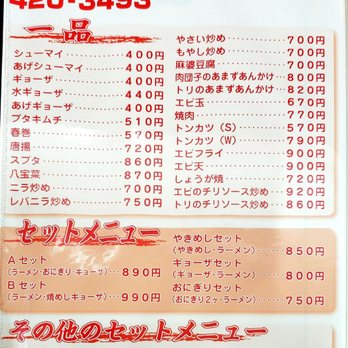 420-3493
一品
シューマイ 400円
あげシューマイ 400円
ギョーザ 400円
水ギョーザ 440円
あげギョーザ 400円
ブタキムチ 510円
春巻 570円
唐揚 720円
スブタ 860円
八宝菜 870円
ニラ炒め 700円
レバニラ炒め 750円
やさい炒め 700円
もやし炒め 700円
麻婆豆腐 700円
肉団子のあまずあんかけ 800円
トリのあまずあんかけ 820円
エビ玉 700円
焼肉 770円
トンカツ（S） 570円
トンカツ（W） 790円
エビフライ 900円
エビ天 900円
しょうが焼 720円
エビのチリソース炒め 920円
トリのチリソース炒め 860円
セットメニュー
Aセット
（ラーメン・おにぎり・ギョーザ） 890円
Bセット
（ラーメン・焼めしギョーザ） 990円
やきめしセット
（やきめし・ラーメン） 850円
ギョーザセット
（ギョーザ・ラーメン） 800円
おにぎりセット
（おにぎり2ヶ・ラーメン） 750円
その他のセットメニュー